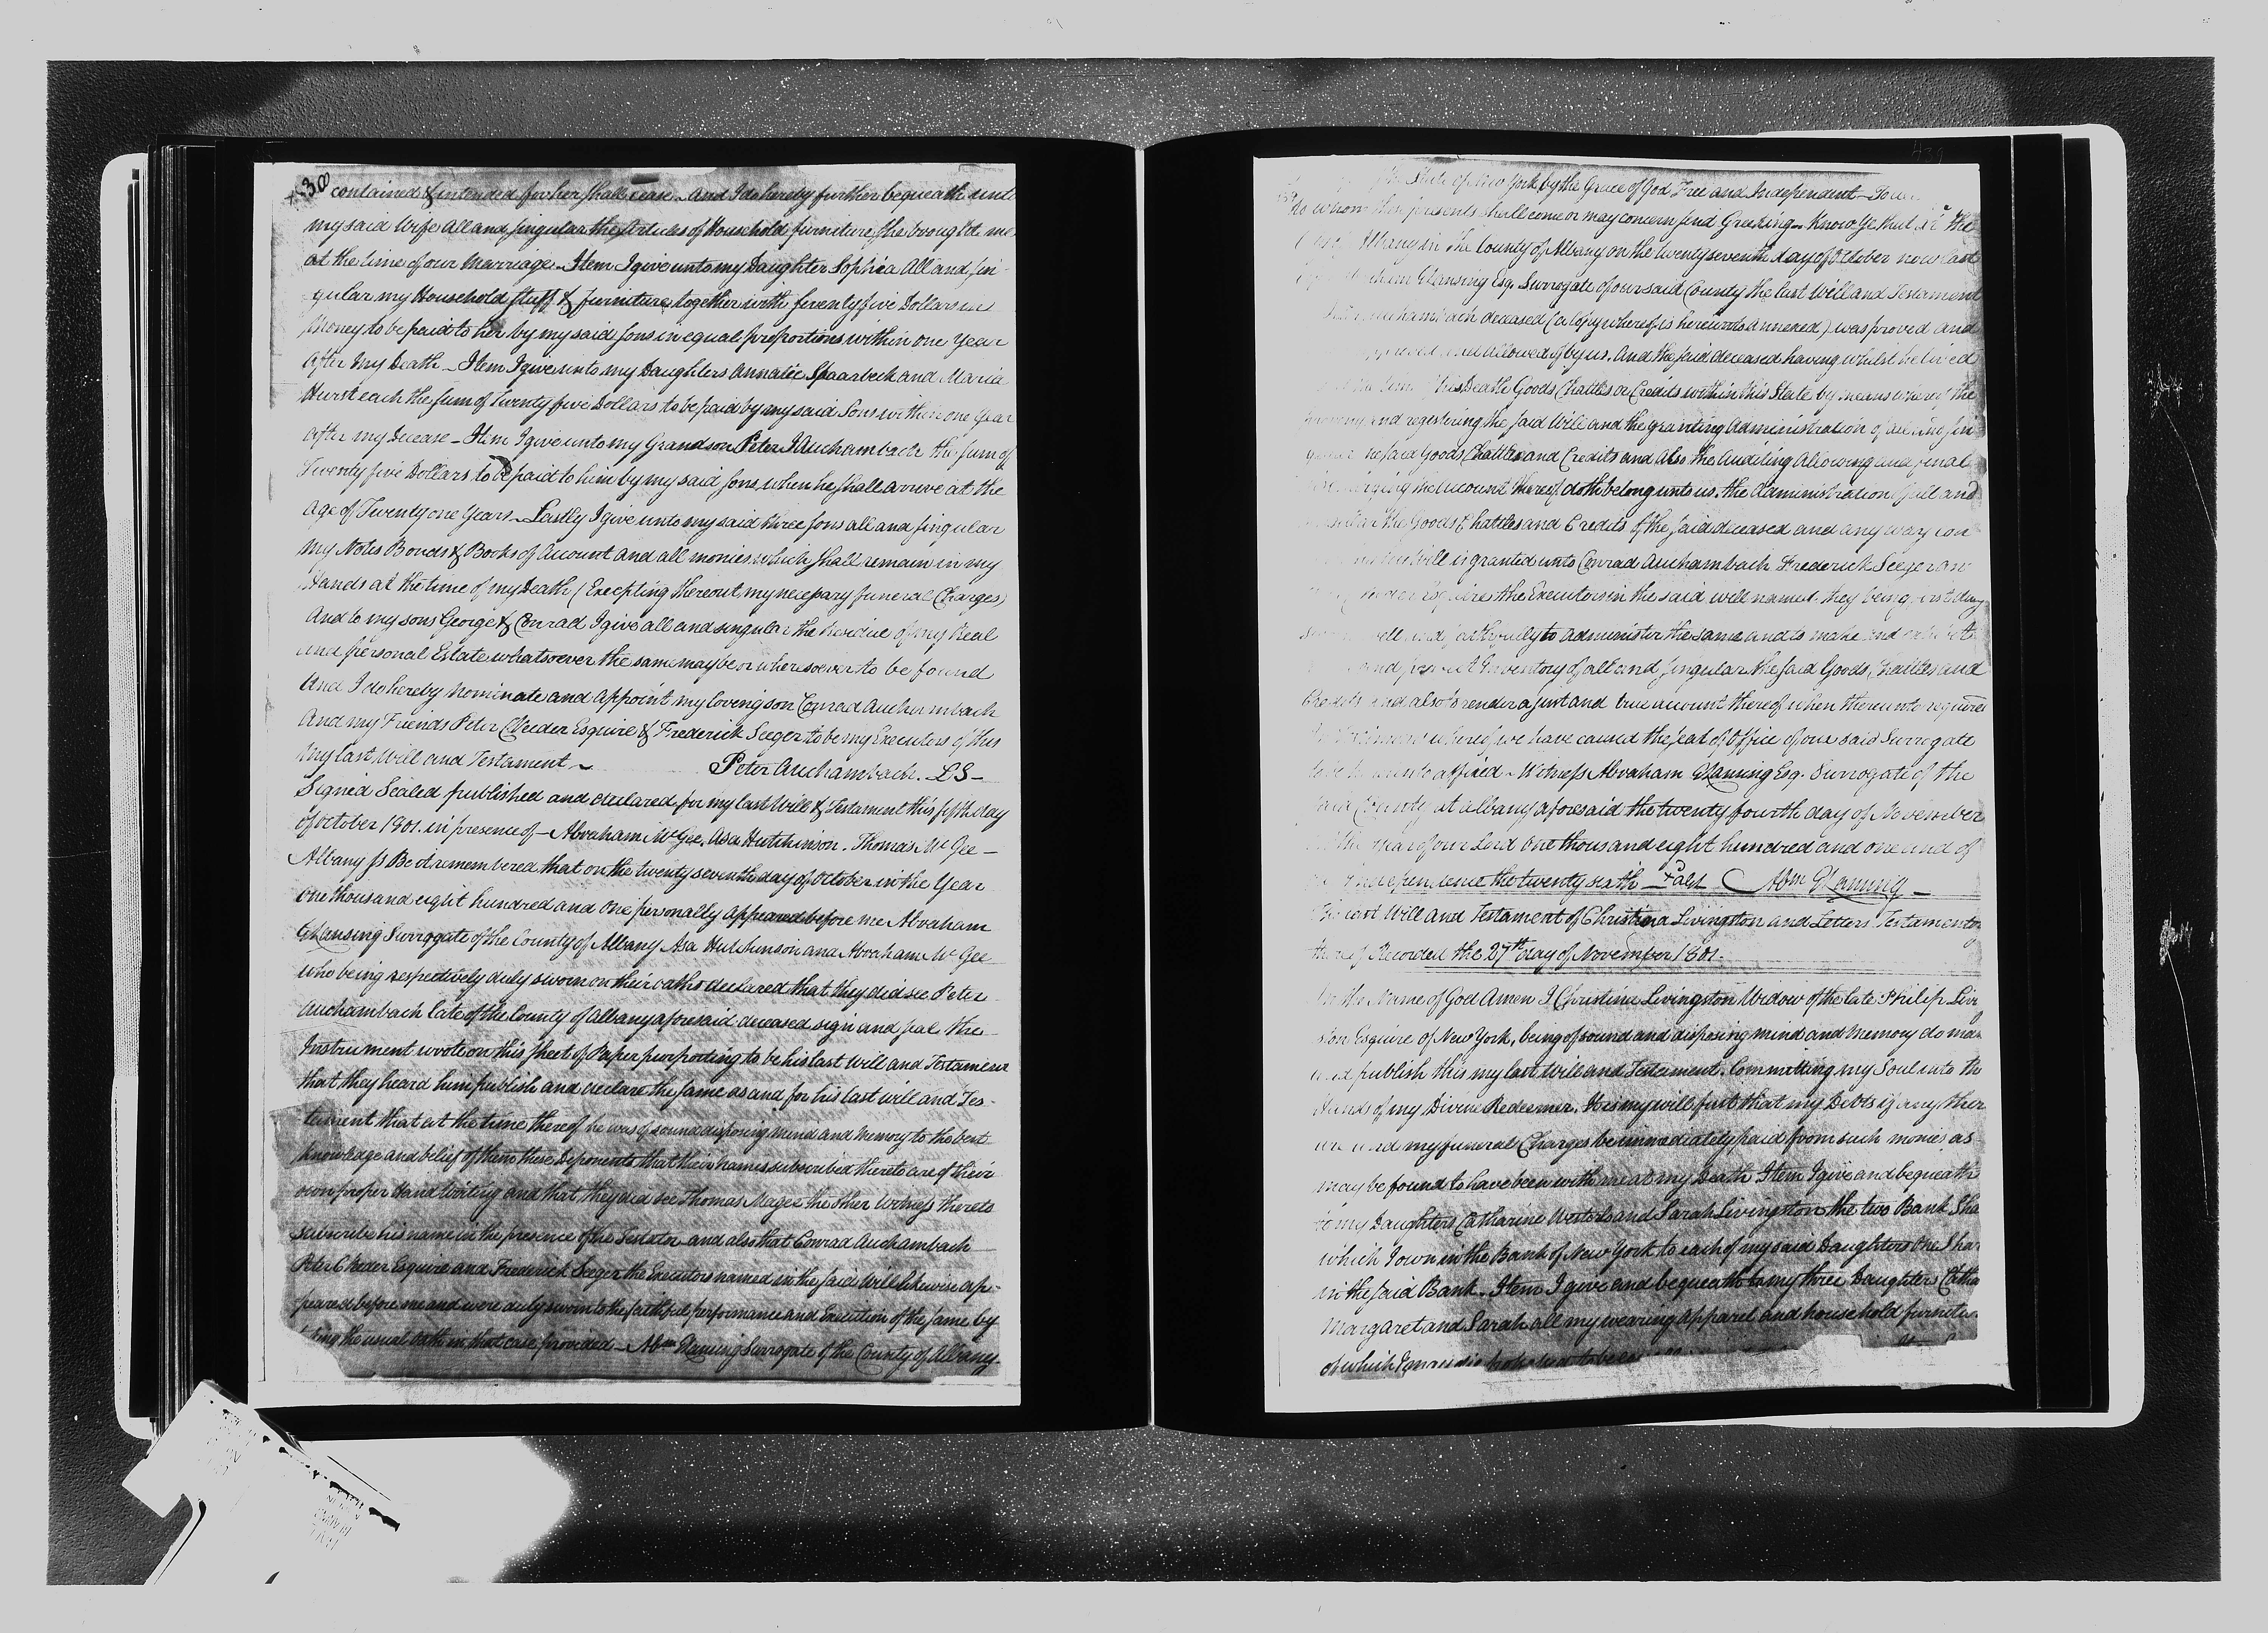 438 contained & intended for her shall cease. And I do hereby further bequeath unto
my said Wife all and singular the Articles of Household furniture she brought me
at the time of our Marriage. Item I give unto my Daughter Sophia All and sin-
gular my Household stuff & furniture together with seventy five Dollars in
Money to be paid to her by my said sons in equal proportions within one Year
after my Death - Item I give unto my Daughters Annalie Spaarbeck and Maria
Hurst each the sum of Twenty five Dollars to be paid by my said Sons within one Year
after my Decease - Item I give unto my Grandson Peter J Auchambach the sum of
Twenty five Dollars to be paid to him by my said sons when he shall arrive at the
age of Twenty one Years - Lastly I give unto my said three sons all and singular
My Notes Bonds & Books of Account and all monies which shall remain in my
Hands at the time of my Death (Excepting thereout my necessary funeral Charges)
And to my sons George & Conrad I give all and singular the Residue of my Real
and personal Estate whatsoever the same may be or wheresoever to be found
And I do hereby Nominate and Appoint my loving son Conrad Auchambach
And my Friends Peter C Veeder Esquire & Frederick Seeger to be my Executors of this
My last Will and Testament ~ Peter Auchambach. LS -
Signed Sealed published and declared for my last Will & Testament this fifth day
of October 1801. in presence of - Abraham McGee. Asa Hutchinson. Thomas McGee -
Albany ss Be it remembered that on the twenty seventh day of October in the Year
one thousand eight hundred and One personally appeared before me Abraham
G Lansing Surrogate of the County of Albany Asa Hutchinson and Abraham McGee
who being respectively duly sworn on their oaths declared that they did see Peter
Auchambach late of the County of Albany aforesaid deceased sign and seal the
Instrument wrote on this sheet of Paper purporting to be his last Will and Testament
that they heard him publish and declare the same as and for his last will and Tes-
tament that at the time thereof he was of sound disposing mind and Memory to the best
knowledge and belief of them these Deponents that their names subscribed thereto are of their
own proper Hand Writing and that they did see Thomas Magee the other Witness thereto
subscribe his name in the presence of the Testator and also that Conrad Auchambach
Peter C Veeder Esquire and Frederick Seeger the Executors named in the said Will likewise ap-
peared before me and were duly sworn to the faithful performance and Execution of the same by
taking the usual oath in that case provided - Abm G Lansing Surrogate of the County of Albany.
439
the State of New York by the Grace of God Free and Independent - To
to whom these presents shall come or may concern send Greeting - Know Ye that at the
Albany in the County of Albany on the twenty seventh day of October now last
G Lansing Esq. Surrogate of our said County the last Will and Testament
Auchambach deceased (a Copy whereof is hereunto annexed) was proved and
approved and allowed of by us. And the said deceased having whilst he lived
his Death Goods Chattles or Credits within this State by means whereof the
proving and registering the said Will and the granting Administration of all and sin
the said Goods Chattles and Credits and also the Auditing Allowing and final
discharging the account thereof doth belong unto us. the Administration of all and
singular the Goods Chattles and Credits of the said deceased and any way con
Will is granted unto Conrad Auchambach Frederick Seeger an
Esquires the Executors in the said will named. they being first duly
sworn well and faithfully to Administer the same and to make and exhibit
and perfect Inventory of all and singular the said Goods Chattles and
Credits and also to render a just and true account thereof when thereunto required
In Testimony whereof we have caused the seal of Office of our said Surrogate
to be hereunto affixed - Witness Abraham G Lansing Esq. Surrogate of the
said County at Albany aforesaid the twenty fourth day of November
in the year of our Lord One thousand eight hundred and one and of
our Independence the twenty sixth - Abm G Lansing -
The last Will and Testament of Christina Livingston and Letters Testamentary
thereof Recorded the 27th day of November 1801.
In the Name of God Amen I Christina Livingston Widow of the late Philip Living
ston Esquire of New York, being of sound and disposing mind and memory do mak
and publish this my last Will and Testament. Committing my Soul into the
Hands of my Divine Redeemer. It is my will first that my Debts if any ther
are and my funeral Charges be immediately paid from such monies as
may be found to have been with me at my Death Item I give and bequeath
to my Daughters Catharine Westerlo and Sarah Livingston the two Bank Sha
which I own in the Bank of New York to each of my said Daughters One Shar
in the said Bank. Item I give and bequeath to my three Daughters Catha
Margaret and Sarah all my wearing Apparel and household furnitu
of which I